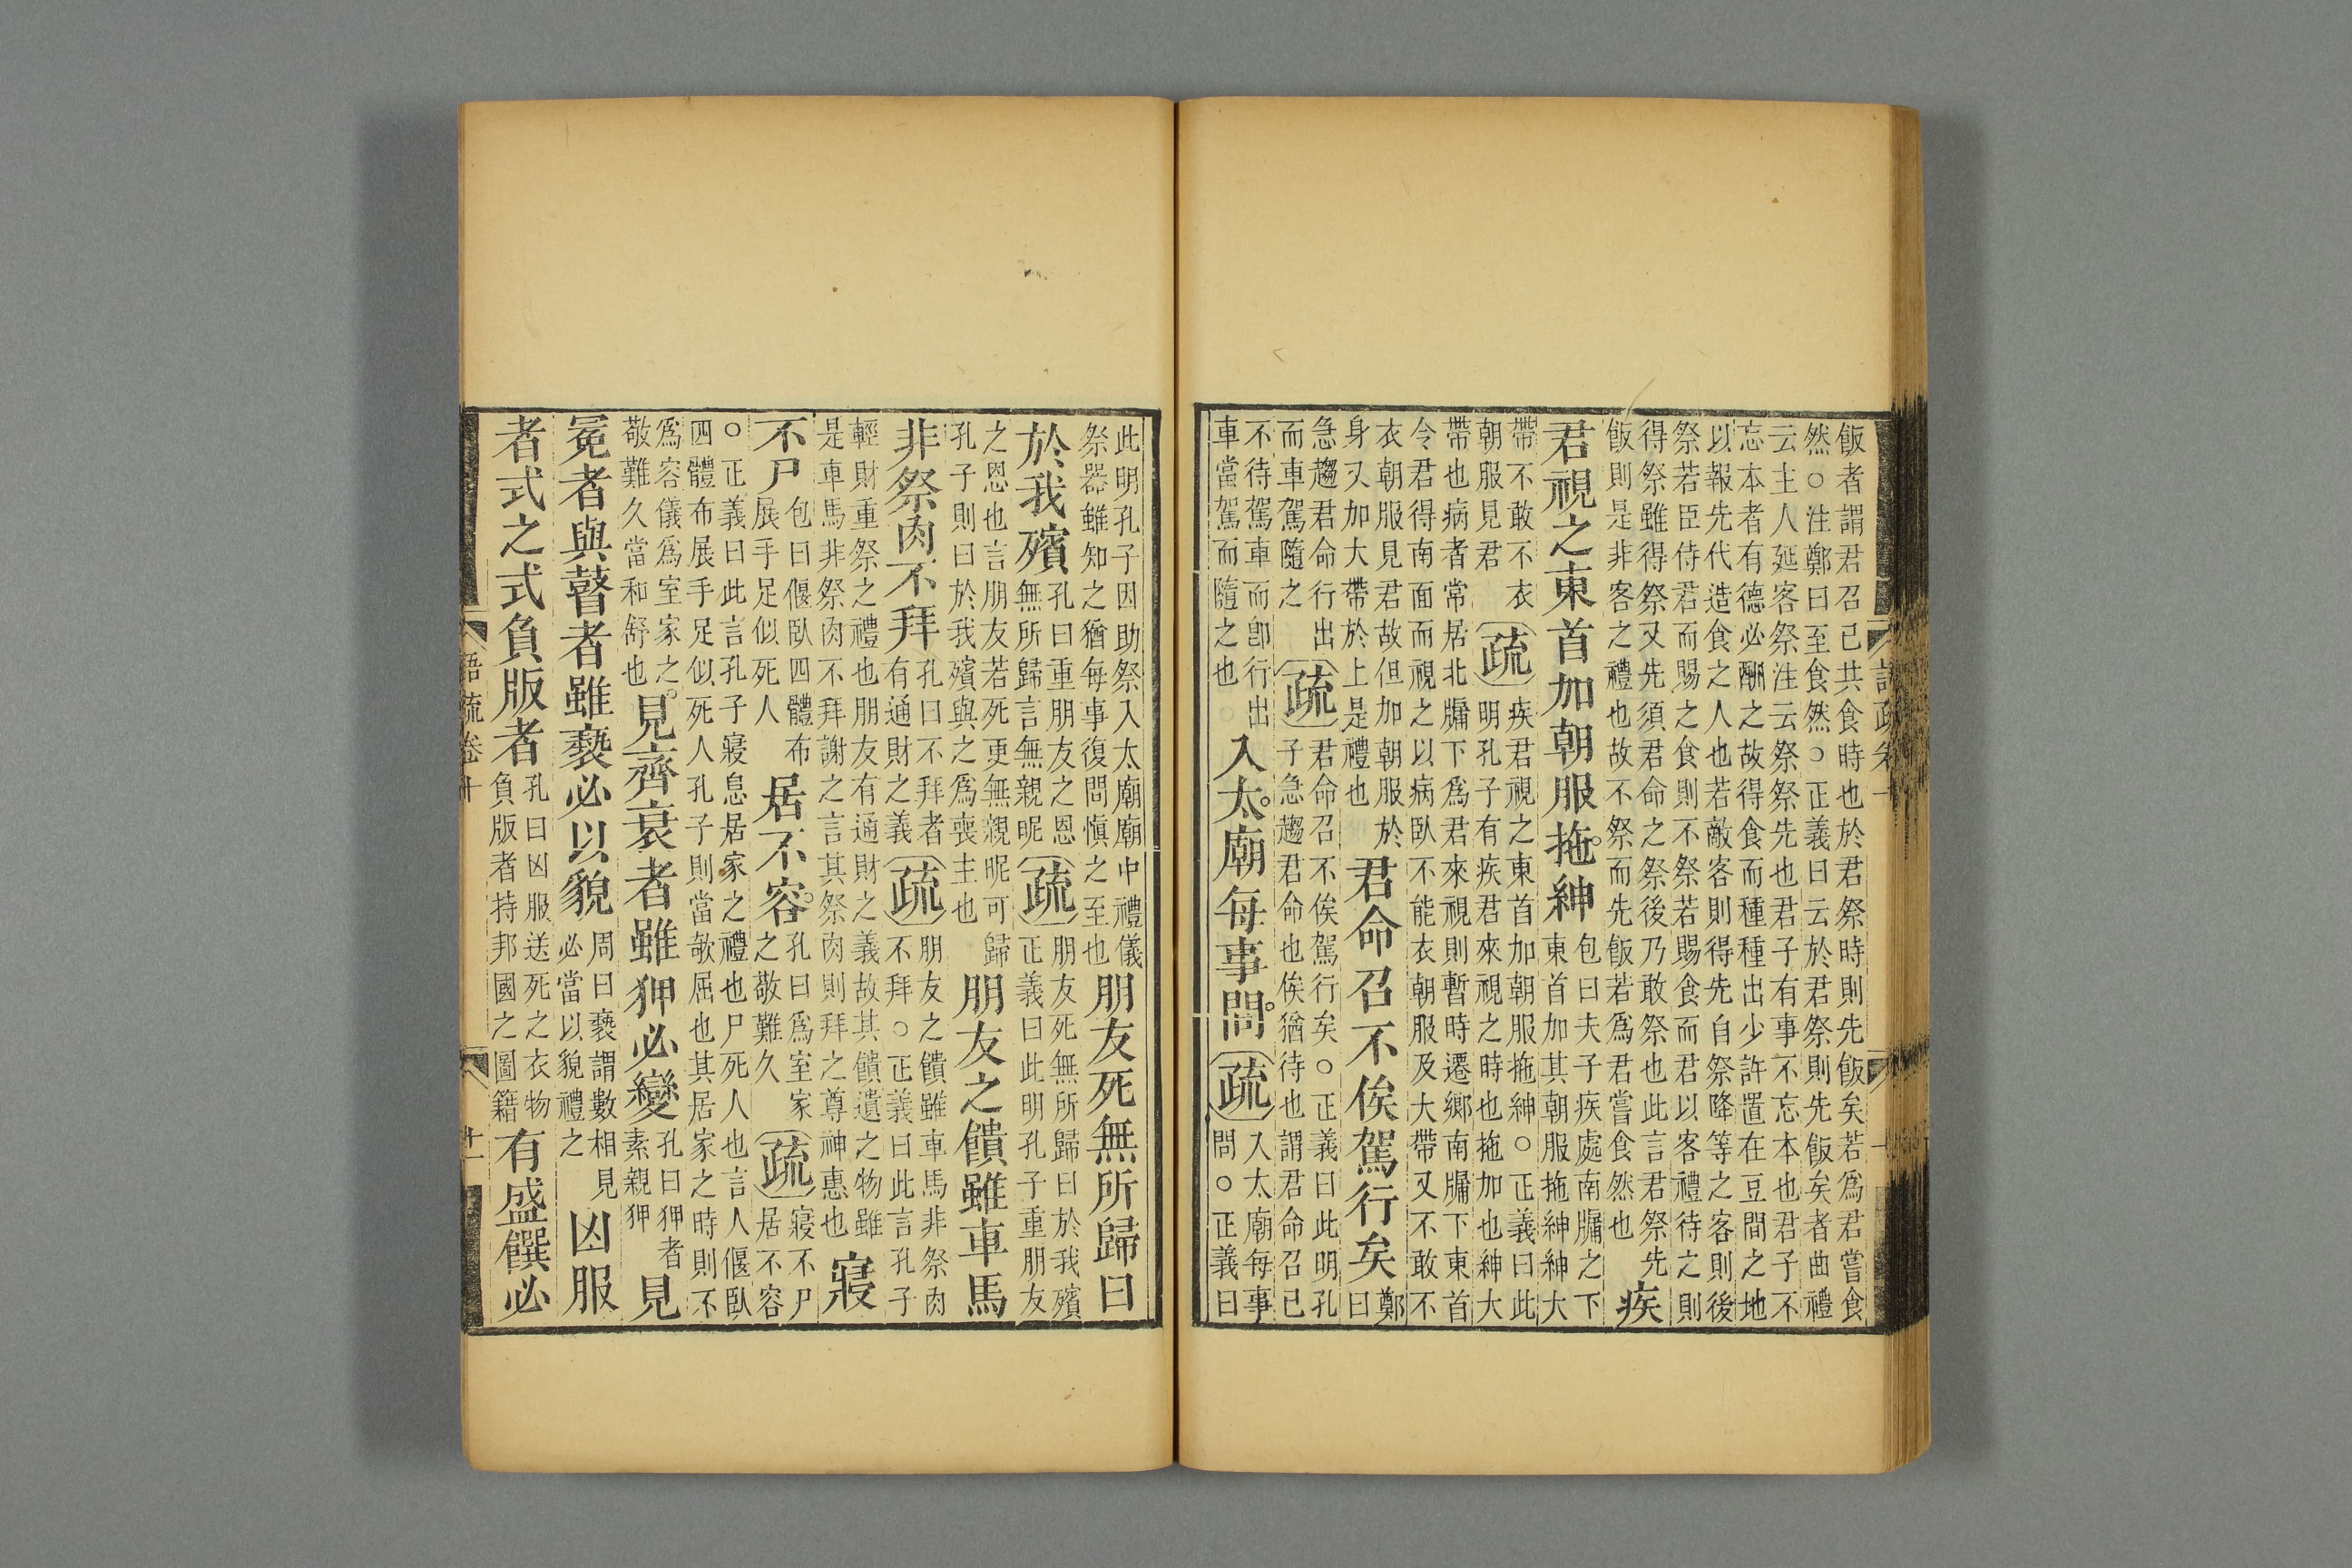 飯者謂君召己共食時也於君祭時則先飯矣若爲君嘗食
然○注鄭曰至食然○正義曰云於君祭則先飯矣者曲禮
云主人延客祭注云祭祭先也君子有事不忘本也君子不
忘本者有德必酬之故得食而種種出少許置在豆間之地
以報先代造食之人也若敵客則得先自祭降等之客則後
祭若臣侍君而賜之食則不祭若賜食而君以客禮待之則
得祭雖得祭又先須君命之祭後乃敢祭也此言君祭先
飯則是非客之禮也故不祭而先飯若爲君嘗食然也
疾
君視之東首加朝服拖紳
包曰夫子疾處南牖之下
東首加其朝服拖紳紳大
帶不敢不衣
朝服見君
疏
疾君視之東首加朝服拖紳○正義曰此
明孔子有疾君來視之時也拖加也紳大
帶也病者常居北牖下爲君來視則暫時遷鄉南牖下東首
令君得南面而視之以病臥不能衣朝服及大帶又不敢不
衣朝服見君故但加朝服於
身又加大帶於上是禮也
君命召不俟駕行矣
鄭曰
急趨君命行出
而車駕隨之
疏
君命召不俟駕行矣○正義曰此明孔
子急趨君命也俟猶待也謂君命召己
不待駕車而卽行出
車當駕而隨之也
入太廟每事問
疏
入太廟每事
問○正義曰
此明孔子因助祭入太廟廟中禮儀
祭器雖知之猶每事復問愼之至也
朋友死無所歸曰
於我殯
孔曰重朋友之恩
無所歸言無親昵
疏
朋友死無所歸曰於我殯
正義曰此明孔子重朋友
之恩也言朋友若死更無親昵可歸
孔子則曰於我殯與之爲喪主也
朋友之饋雖車馬
非祭肉不拜
孔曰不拜者
有通財之義
疏
朋友之饋雖車馬非祭肉
不拜○正義曰此言孔子
輕財重祭之禮也朋友有通財之義故其饋遺之物雖
是車馬非祭肉不拜謝之言其祭肉則拜之尊神惠也
寢
不尸
包曰偃臥四體布
展手足似死人
居不容
孔曰爲室家
之敬難久
疏
寢不尸
居不容
○正義曰此言孔子寢息居家之禮也尸死人也言人偃臥
四體布展手足似死人孔子則當欹屈也其居家之時則不
爲容儀爲室家之
敬難久當和舒也
見齊衰者雖狎必變
孔曰狎者
素親狎
見
冕者與瞽者雖褻必以貌
周曰褻謂數相見
必當以貌禮之
凶服
者式之式負版者
孔曰凶服送死之衣物
負版者持邦國之圖籍
有盛饌必
語疏卷十
十一